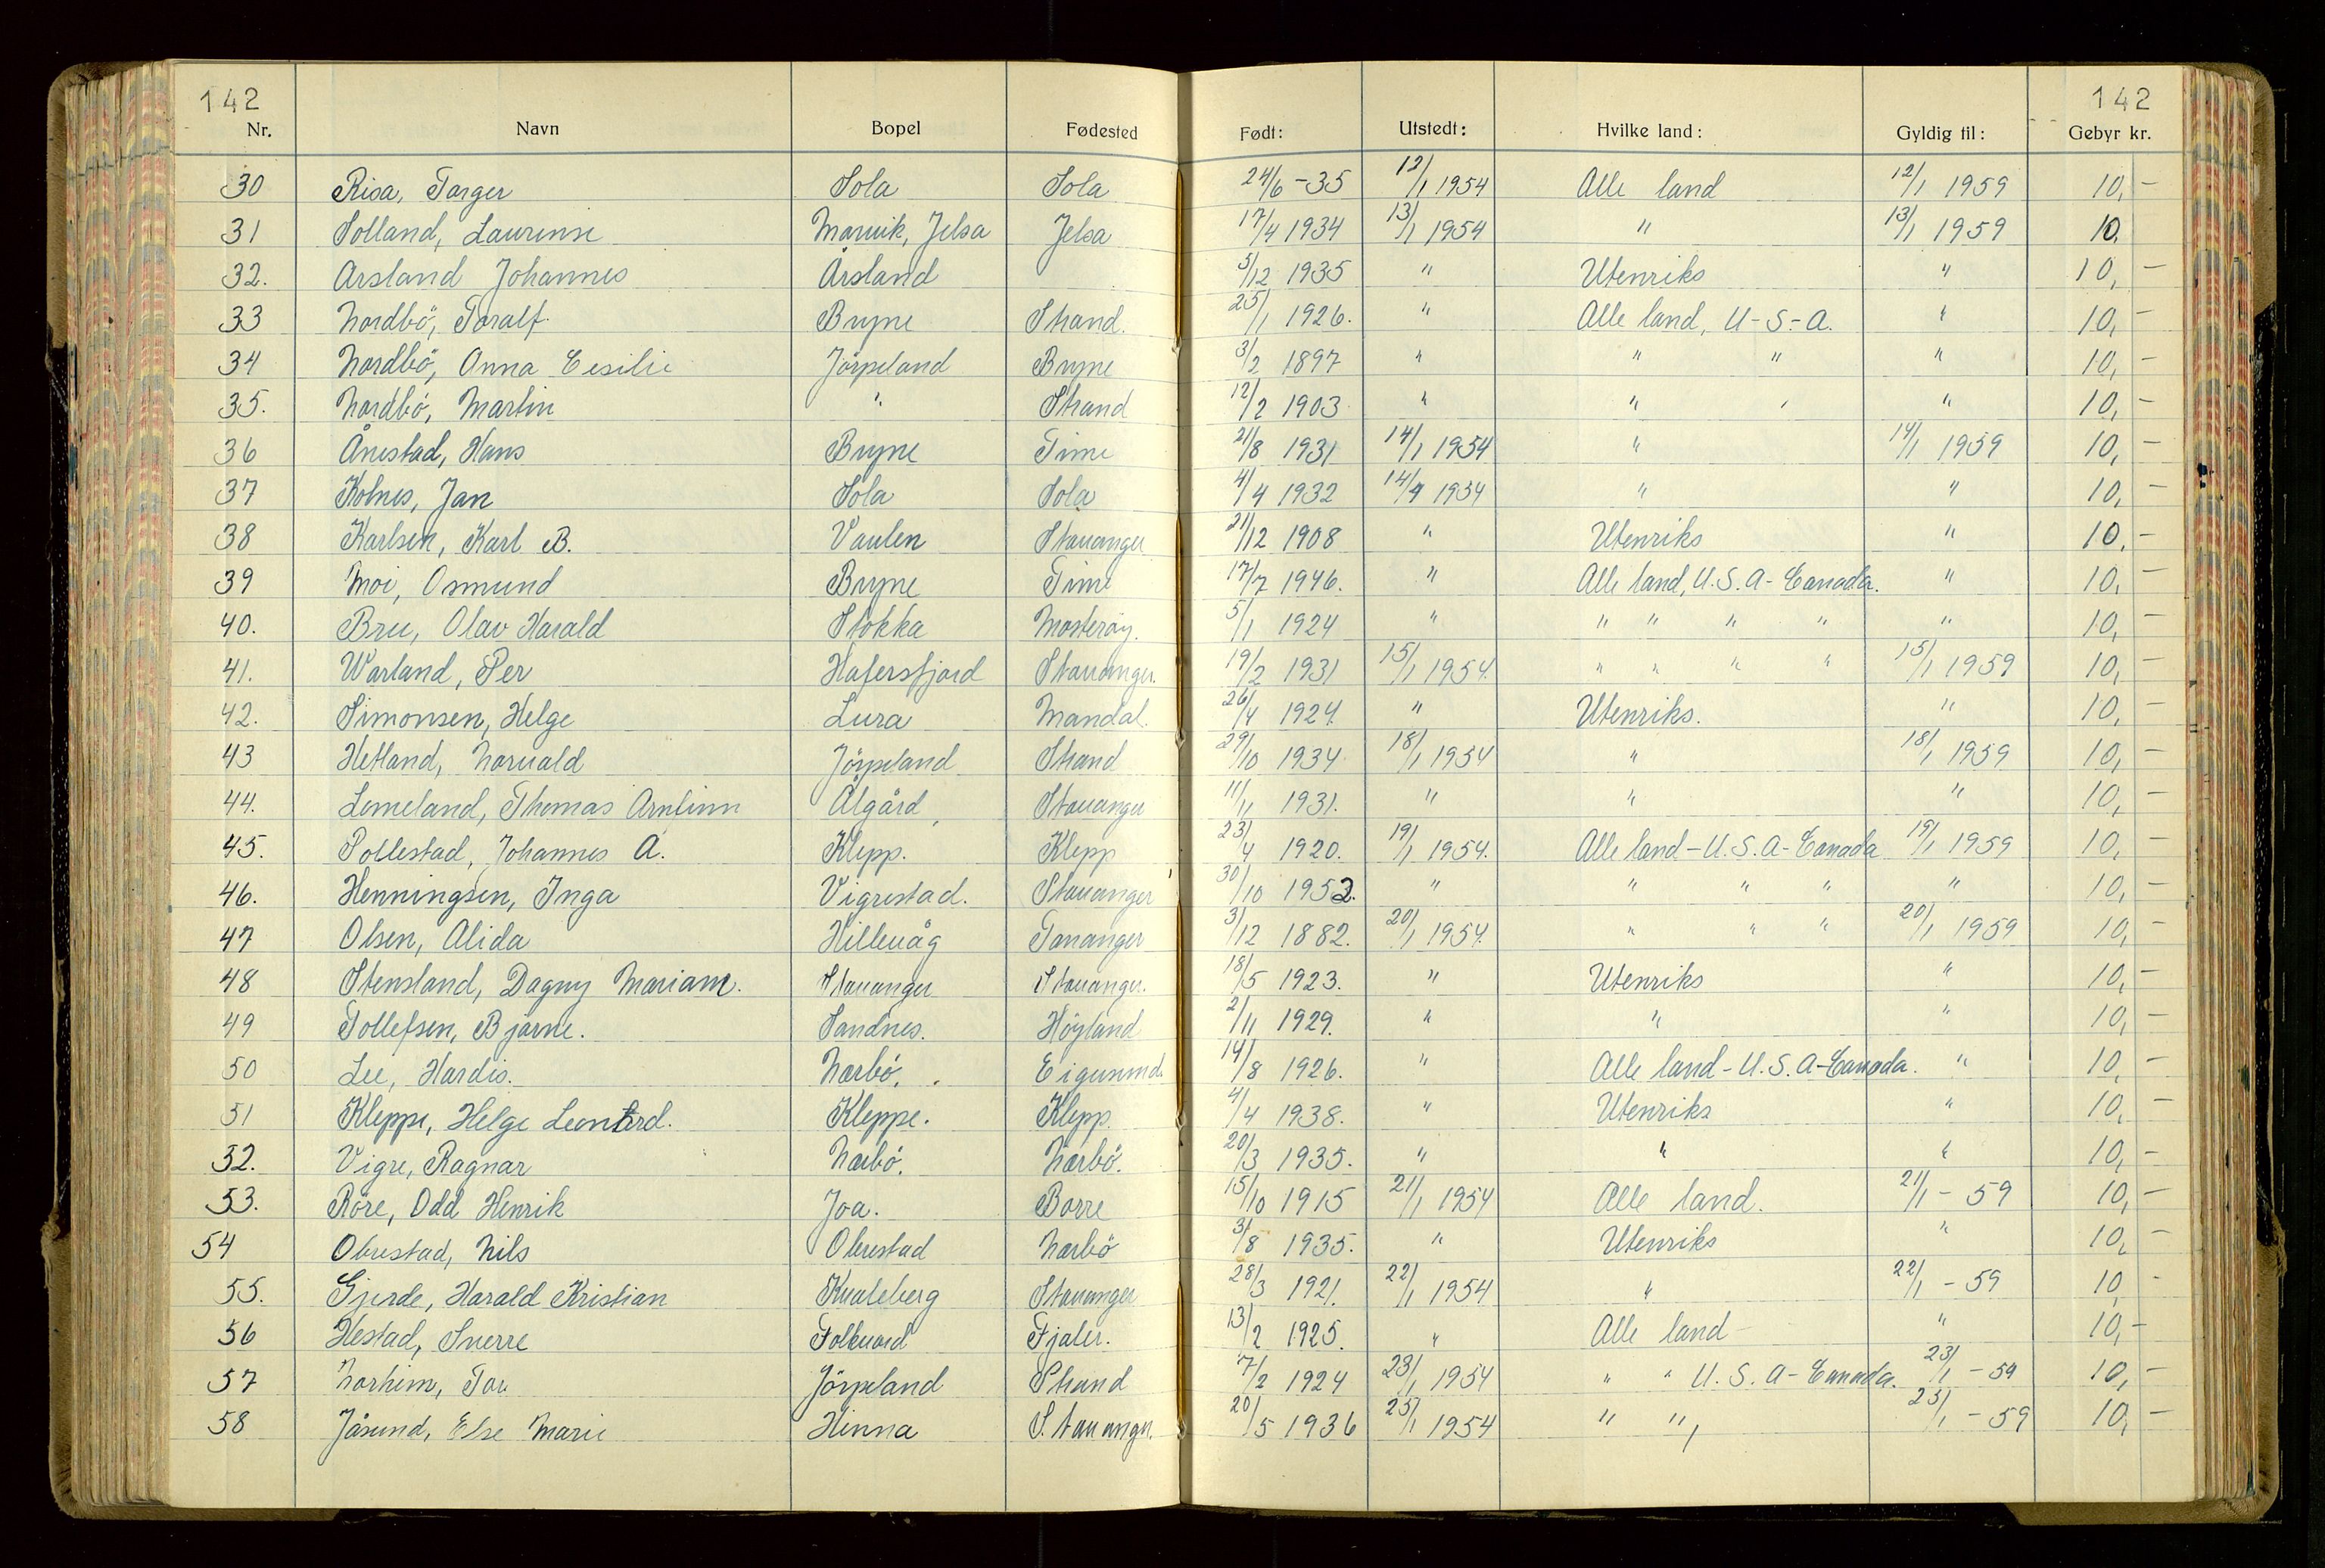 142 142
Nr. Navn Bopel Fødested Født: Utstedt: Hvilke land: Gyldig til: Gebyr kr.
30 Risa, Torger Sola Sola 24/6 -35 12/1 1954 Alle land 12/1 1959 10,-
31 Solland, Laurense Marvik, Jelsa Jelsa 17/4 1934 13/1 1954 " 13/1 1959 10,
32. Årsland Johannes Årsland 5/12 1935 " Utenriks " 10,-
33 Nordbö, Toralf. Bryne Strand. 25/1 1926. " Alle land, U-S-A. " 10,-
34 Nordbö, Anna Cesilie Jörpeland Bryne 3/2 1897 " " " " 10,-
35. Nordbö, Martin " Strand 12/2 1903 " " " " 10,-
36 Ånestad, Hans Bryne Time 21/8 1931 14/1 1954 " 14/1 1959 10,-
37 Kolnes, Jan Sola Sola 4/4 1932 14/1 1954 " " 10,-
38 Karlsen, Karl B. Vaulen Stavanger 21/12 1908 " Utenriks " 10.-
39 Moi, Osmund Bryne Time 17/7 1946. " Alle land, U.S.A-Canada. " 10,-
40. Bru, Olav Harald Stokka Mosteröy. 5/1 1924 " " " " " " 10,-
41. Warland, Per Hafersfjord Stavanger. 19/2 1931 15/1 1954. " " " " 15/1 1959 10,-
42. Simonsen, Helge Lura Mandal. 26/4 1924. " Utenriks. " 10,-
43 Hetland, Norvald Jörpeland Strand 29/10 1934 18/1 1954 " 18/1 1959 10,-
44. Lomeland, Thomas Arnfinn Ålgård, Stavanger 11/11 1931. " " " 10,-
45. Pollestad, Johannes A. Klepp. Klepp 23/4 1920. 19/1 1954. Alle land-U.S.A-Canada 19/1 1959 10,-
46. Henningsen, Inga Vigrestad. Stavanger 30/10 1952. " " " " " 10,-
47 Olsen, Alida Hillevåg Tananger 3/12 1882. 20/1 1954. " " " 20/1 1959 10,-
48 Stensland, Dagny Mariam. Stavanger Stavanger. 18/5 1923. " Utenriks " 10,-
49 Tollefsen, Bjarne. Sandnes. Höyland 2/11 1929. " " " 10,-
50 Lee, Hardis. Nærbö. Eigersund. 14/8 1926. " Alle land-U.S.A-Canada. " 10,-
51 Kleppe, Helge Leonard. Kleppe. Klepp. 4/4 1938. " Utenriks " 10,-
52. Vigre, Ragnar Nærbö. Nærbö. 20/3 1935. " " " 10,-
53. Röre, Odd Henrik Joa. Borre 15/10 1915 21/1 1954 Alle land. 21/1 - 59 10,-
54 Obrestad, Nils Obrestad Nærbö 3/8 1935. " Utenriks " 10,-
55. Gjerde, Harald Kristian Kvaleberg Stavanger 28/3 1921. 22/1 1954 " 22/1 - 59 10,-
56 Hestad, Sverre Folkvord Fjaler. 13/2 1925. " Alle land " 10,-
57 Norheim, Tor Jörpeland Strand 7/2 1924 23/1 1954 " " U.S.A-Canada. 23/1 - 59 10,-
58 Jåsund, Else Marie Hinna Stavanger. 20/5 1936 25/1 1954 " ", 25/1 - 59 10,-